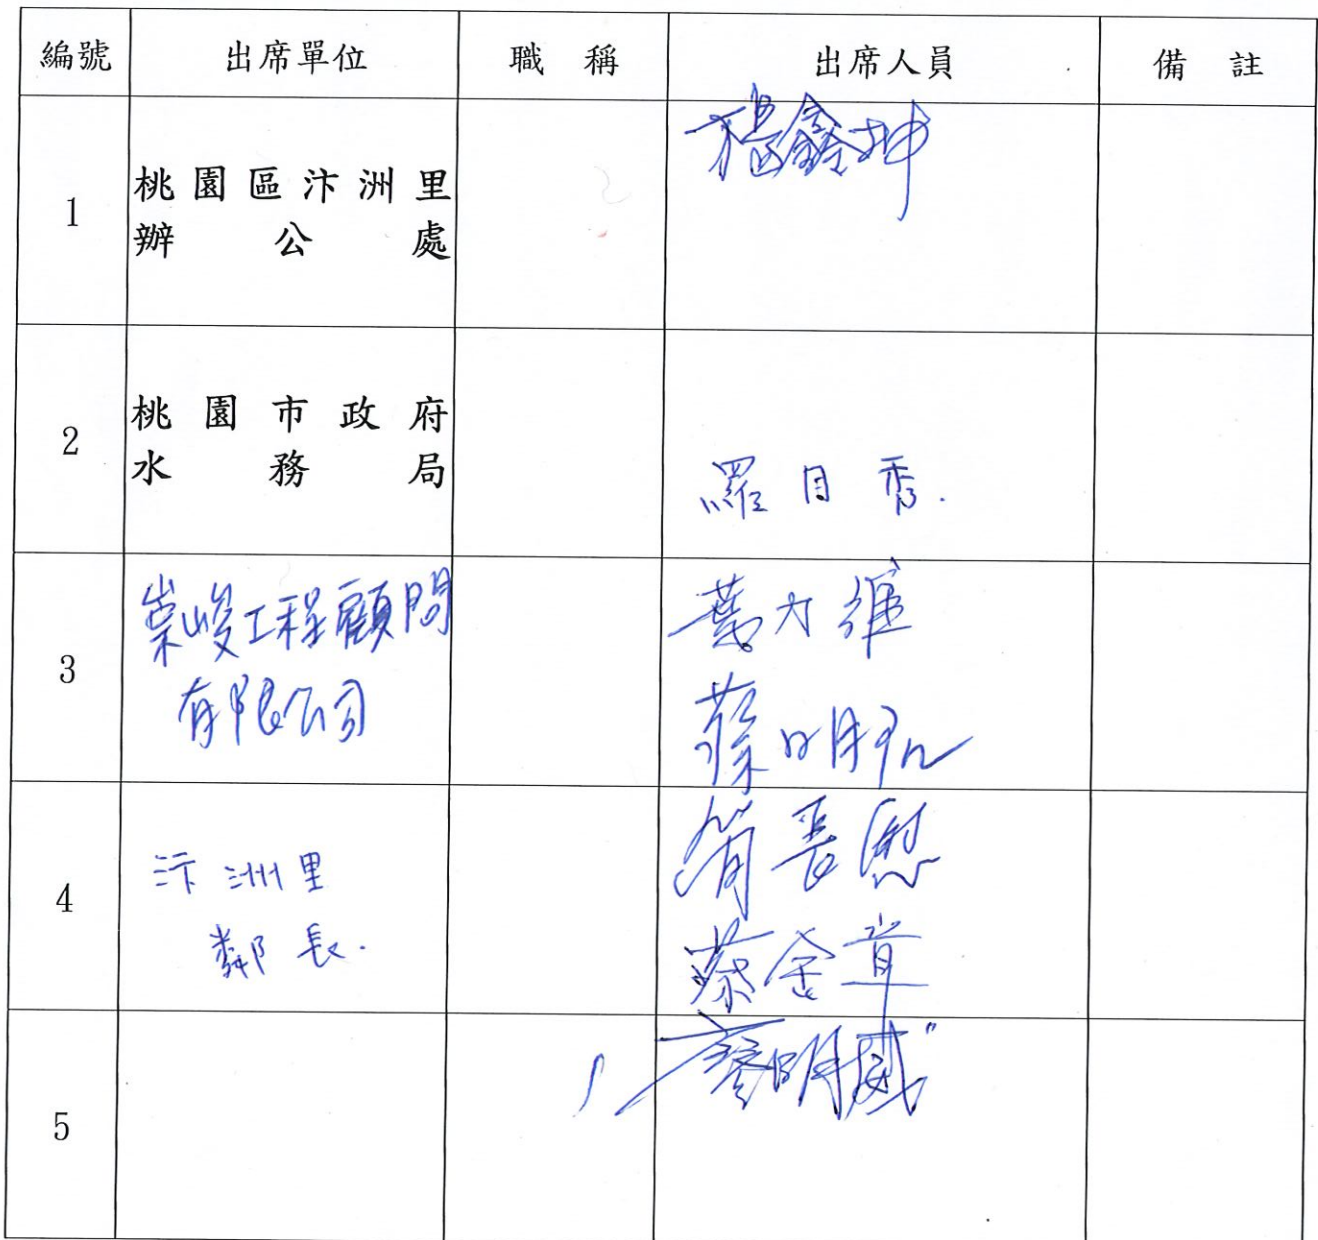 編號 出席單位 職稱 出席人員 備註
1 桃園區汴洲里
辦公處
楊鑫坤
2 桃園市政府
水務局
羅月秀.
3 崇峻工程顧問
有限公司
葉力維
蔡明弘
4 汴洲里
鄰長.
簡長
蔡金章
5 廖明威